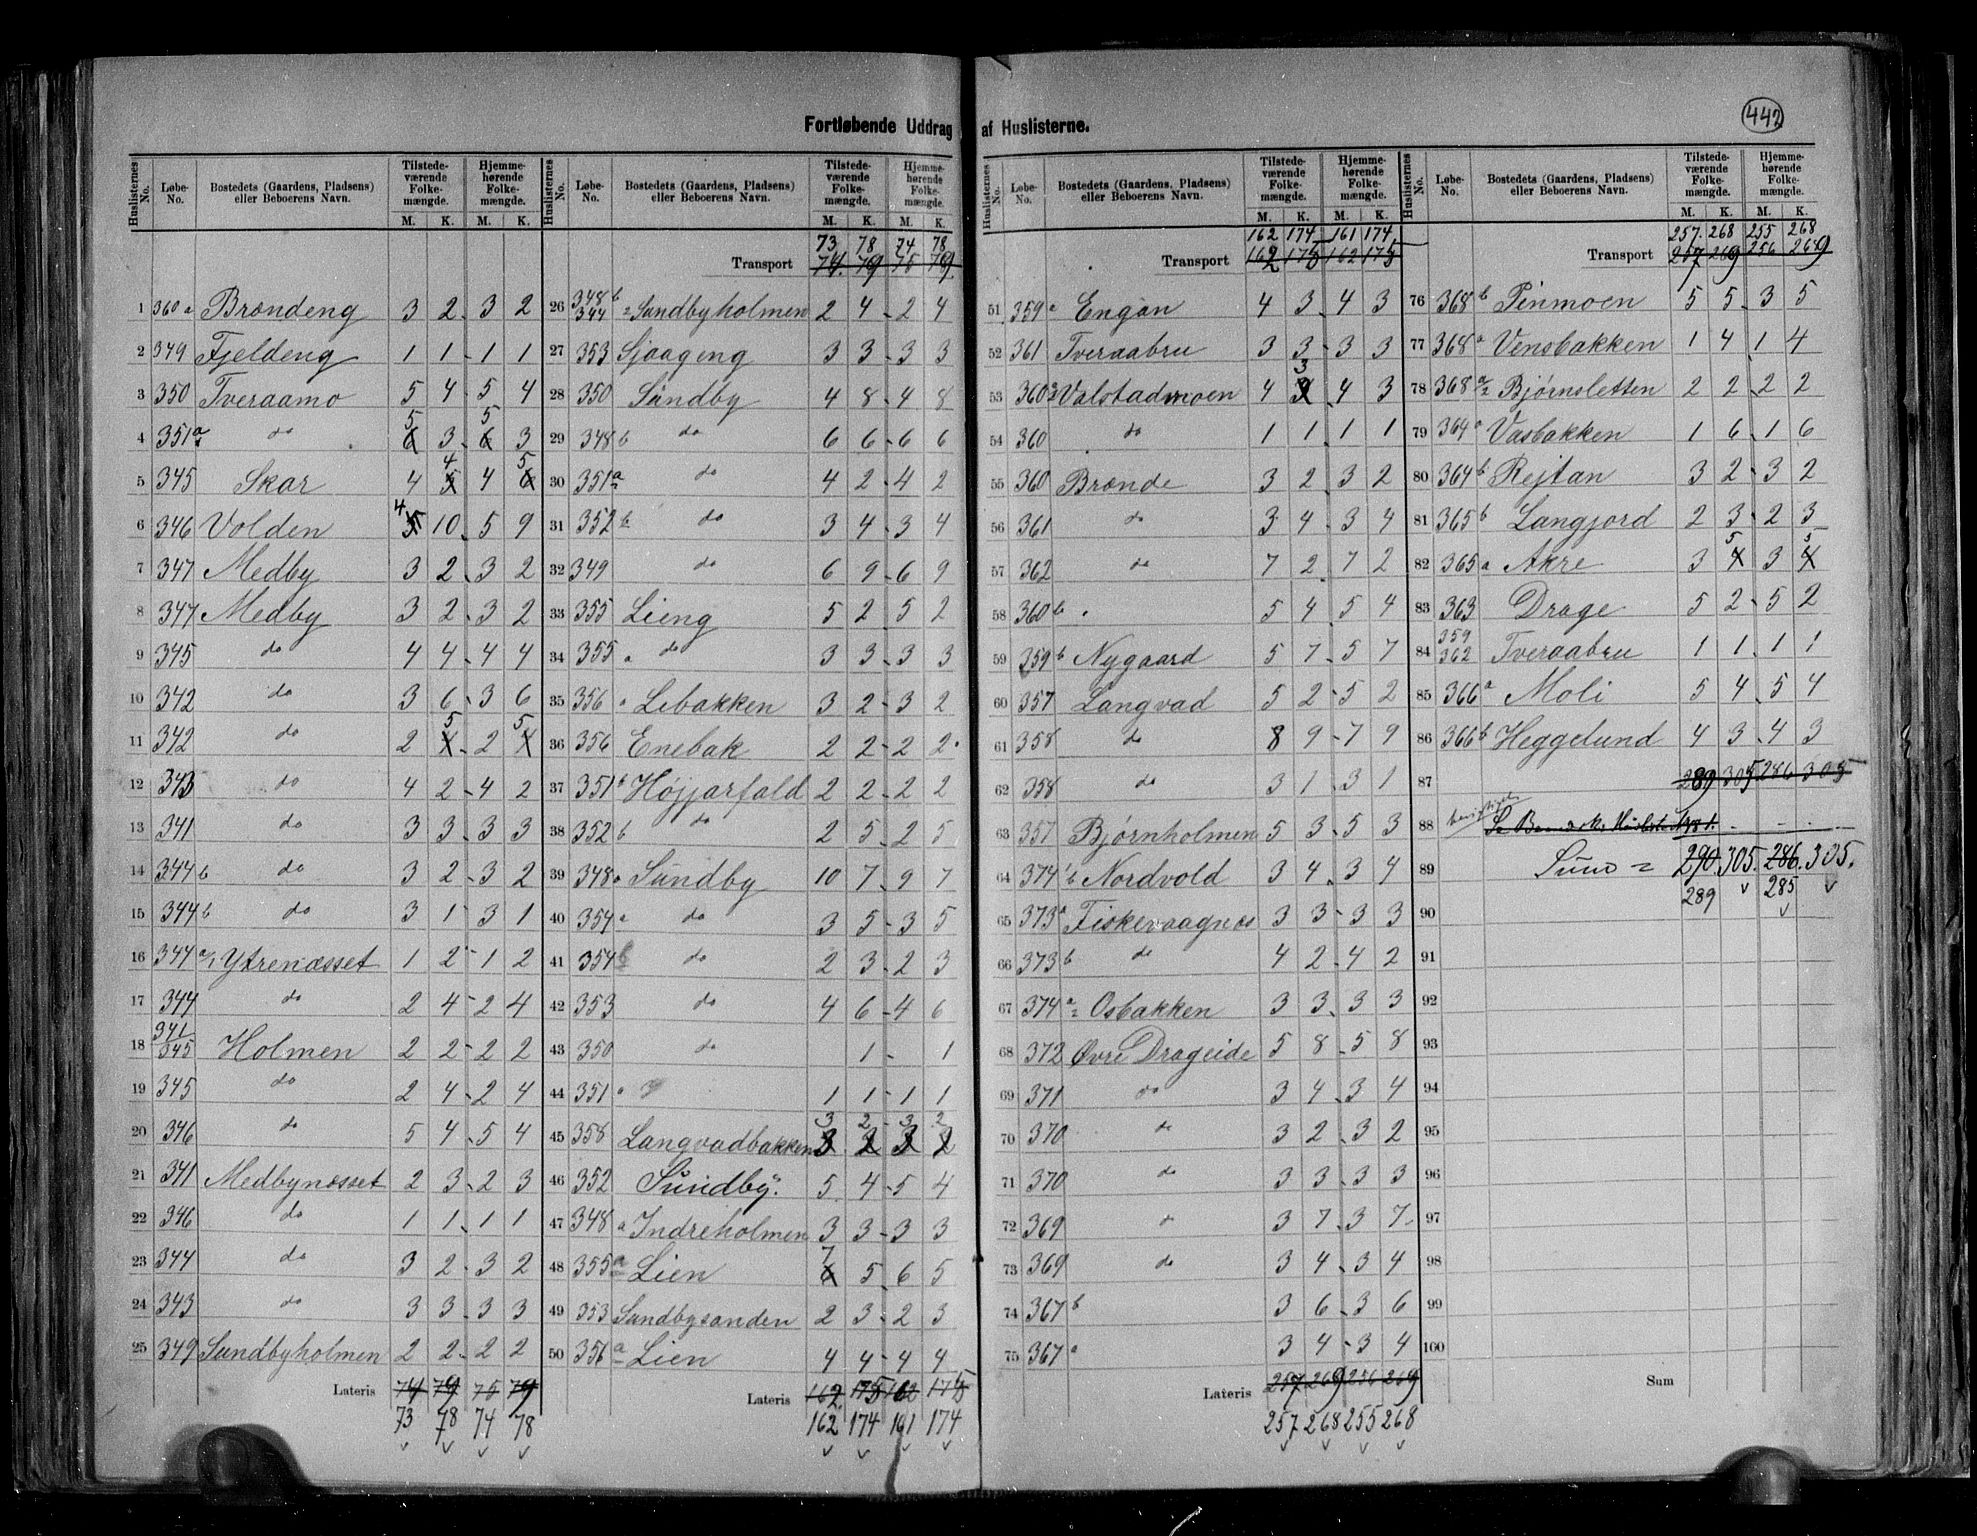 442
Fortløbende Uddrag af Huslisterne.
Huslisternes No. Løbe-No. Bostedets (Gaardens, Pladsens) eller Beboerens Navn. Tilstedeværende Folkemængde. M. K. Hjemmehørende Folkemængde. M. K.
1 360 a Brøndeng 3 2 3 2
2 379 Fjeldeng 1 1 1 1
3 350 Tveraamo 5 4 5 4
4 351 a do 6 5 3 6 5 3
5 345 Skar 4 5 4 4 6 5
6 346 Volden 5 4 10 5 9
7 347 Medby 3 2 3 2
8 347 Medby 3 2 3 2
9 345 do 4 4 4 4
10 342 do 3 6 3 6
11 342 do 2 4 5 2 4 5
12 343 do 4 2 4 2
13 341 do 3 3 3 3
14 344 b do 3 2 3 2
15 344 b do 3 1 3 1
16 344 a/1 Ytrenæsset 1 2 1 2
17 344 do 2 4 2 4
18 341/345 Holmen 2 2 2 2
19 345 do 2 4 2 4
20 346 do 5 4 5 4
21 341 Medbynæsset 2 3 2 3
22 346 do 1 1 1 1
23 344 do 3 2 3 2
24 343 do 3 3 3 3
25 349 Sundbyholmen 2 2 2 2
Lateris 74 79 75 79
73 78 74 78
Huslisternes No. Løbe-No. Bostedets (Gaardens, Pladsens) eller Beboerens Navn. Tilstedeværende Folkemængde. M. K. Hjemmehørende Folkemængde. M. K.
73 78 74 78
Transport 74 79 75 79
26 348 b 344 Sundbyholmen 2 4 2 4
27 353 Sjaageng 3 3 3 3
28 350 Sundby 4 8 4 8
29 348 b do 6 6 6 6
30 351 a do 4 2 4 2
31 352 b do 3 4 3 4
32 349 do 6 9 6 9
33 355 Lieng 5 2 5 2
34 355 a do 3 3 3 3
35 356 a Libakken 3 2 3 2
36 356 Enebak 2 2 2 2
37 351 b Højjarfald 2 2 2 2
38 352 b do 2 5 2 5
39 348 a Sundby 10 7 9 7
40 354 a do 3 5 3 5
41 354 b do 2 3 2 3
42 353 do 4 6 4 6
43 350 do 1 1
44 351 a 1 1 1 1
45 358 Langvadbakken 3 2 3 2
46 352 Sundby. 5 4 5 4
47 348 a Indreholmen 3 3 3 3
48 355 a Lien 6 7 5 6 5
49 353 Sundbysanden 2 3 2 3
50 356 a Lien 4 4 4 4
Lateris 162 175 162 175
162 174 161 174
Huslisternes No. Løbe-No. Bostedets (Gaardens, Pladsens) eller Beboerens Navn. Tilstedeværende Folkemængde. M. K. Hjemmehørende Folkemængde. M. K.
162 174 161 174
Transport 162 175 162 175
51 359 a Engan 4 3 4 3
52 361 Tveraabru 3 3 3 3
53 360 Valstadmoen 4 3 4 3
54 360 do 1 1 1 1
55 360 Brænde 3 2 3 2
56 361 do 3 4 3 4
57 362 do 7 2 7 2
58 360 b 5 4 5 4
59 359 b Nygaard 5 7 5 7
60 357 Langvad 5 2 5 2
61 358 do 8 9 7 9
62 358 do 3 1 3 1
63 357 Bjørnholmen 5 3 5 3
64 374 b Nordvold 3 4 3 4
65 373 a Fiskevaagnes 3 3 3 3
66 373 b do 4 2 4 2
67 374 a Osbakken 3 3 3 3
68 372 Øvre Drageide 5 8 5 8
69 371 do 3 4 3 4
70 370 do 3 2 3 2
71 370 do 3 3 3 3
72 369 do 3 7 3 7
73 369 do 3 4 3 4
74 367 b 3 6 3 6
75 367 a 3 4 3 4
Lateris 257 269 256 269
257 268 255 268
Huslisternes No. Løbe-No. Bostedets (Gaardens, Pladsens) eller Beboerens Navn. Tilstedeværende Folkemængde. M. K. Hjemmehørende Folkemængde. M. K.
257 268 255 268
Transport 257 269 256 269
76 368 b Finmoen 5 5 3 5
77 368 a Vensbakken 1 4 1 4
78 368 a/2 Bjørnsletten 2 2 2 2
79 364 a Vasbakken 1 6 1 6
80 364 b Rejtan 3 2 3 2
81 365 b Langjord 2 3 2 3
82 365 a Akre 3 4 5 3 4 5
83 363 Drage 5 2 5 2
84 359 362 Tveraabru 1 1 1 1
85 366 a Moli 5 4 5 4
86 366 b Heggelund 4 3 4 3
87 289 305 286 305
88
89 Sum = 290. 305. 286. 305.
289 285
90
91
92
93
94
95
96
97
98
99
100
Sum